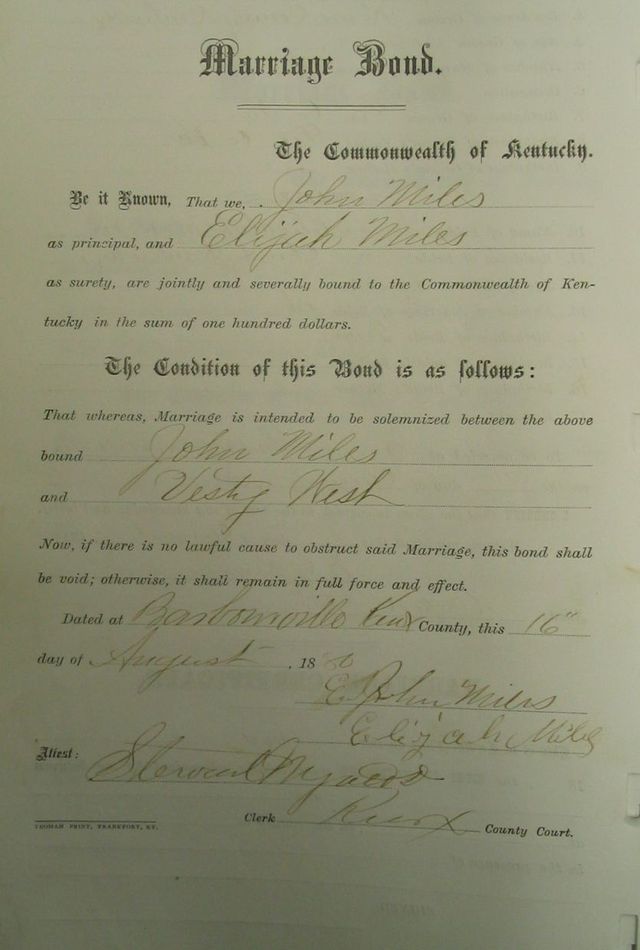 Marriage Bond.
The Commonwealth of Kentucky.
Be it Known, That we, John Miles
as principal, and Elijah Miles
as surety, are jointly and severally bound to the Commonwealth of Ken-
tucky in the sum of one hundred dollars.
The Condition of this Bond is as follows:
That whereas, Marriage is intended to be solemnized between the above
bound John Miles
and Vesty West
Now, if there is no lawful cause to obstruct said Marriage, this bond shall
be void; otherwise, it shall remain in full force and effect.
Dated at Barbourville Knox County, this 16"
day of August, 18
John Miles
Elijah Miles
Attest:
Clerk Knox County Court.
YEOMAN PRINT, FRANKFORT, KY.